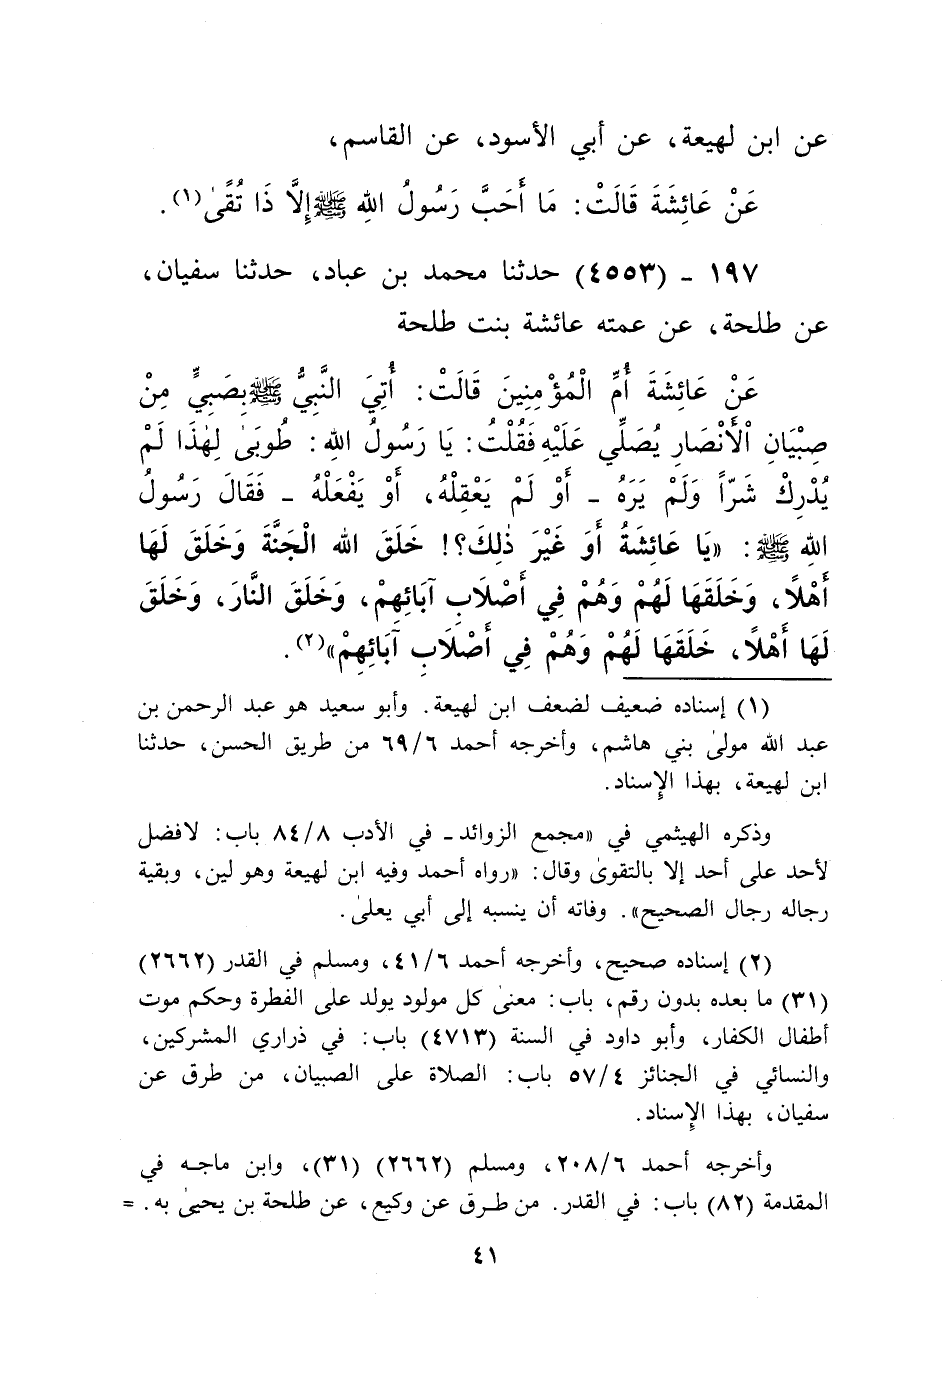 عن ابن لهيعة، عن أبي الأسود، عن القاسم،
عَنْ عَائِشَةَ قَالَتْ: مَا أَحَبَّ رَسُولُ اللهِ ﷺ إِلَّا ذَا تُقًىٰ(١).
١٩٧ ـ (٤٥٥٣) حدثنا محمد بن عباد، حدثنا سفيان،
عن طلحة، عن عمته عائشة بنت طلحة
عَنْ عَائِشَةَ أُمِّ الْمُؤْمِنِينَ قَالَتْ: أُتِيَ النَّبِيُّ ﷺ بِصَبِيٍّ مِنْ
صِبْيَانِ الْأَنْصَارِ يُصَلِّي عَلَيْهِ فَقُلْتُ: يَا رَسُولُ اللهِ: طُوبَىٰ لِهٰذَا لَمْ
يُدْرِكْ شَرّاً وَلَمْ يَرَهُ ـ أَوْ لَمْ يَعْقِلْهُ، أَوْ يَفْعَلْهُ ـ فَقَالَ رَسُولُ
اللهِ ﷺ: «يَا عَائِشَةُ أَوَ غَيْرَ ذٰلِكَ؟! خَلَقَ الله الْجَنَّةَ وَخَلَقَ لَهَا
أَهْلًا، وَخَلَقَهَا لَهُمْ وَهُمْ فِي أَصْلَابِ آبَائِهِمْ، وَخَلَقَ النَّارَ، وَخَلَقَ
لَهَا أَهْلًا، خَلَقَهَا لَهُمْ وَهُمْ فِي أَصْلَابِ آبَائِهِمْ»(٢).
(١) إسناده ضعيف لضعف ابن لهيعة. وأبو سعيد هو عبد الرحمن بن
عبد الله مولىٰ بني هاشم، وأخرجه أحمد ٦٩/٦ من طريق الحسن، حدثنا
ابن لهيعة، بهذا الإِسناد.
وذكره الهيثمي في «مجمع الزوائد ـ في الأدب ٨٤/٨ باب: لافضل
لأحد على أحد إلا بالتقوىٰ وقال: «رواه أحمد وفيه ابن لهيعة وهو لين، وبقية
رجاله رجال الصحيح». وفاته أن ينسبه إلى أبي يعلىٰ.
(٢) إسناده صحيح، وأخرجه أحمد ٤١/٦، ومسلم في القدر (٢٦٦٢)
(٣١) ما بعده بدون رقم، باب: معنىٰ كل مولود يولد على الفطرة وحكم موت
أطفال الكفار، وأبو داود في السنة (٤٧١٣) باب: في ذراري المشركين،
والنسائي في الجنائز ٥٧/٤ باب: الصلاة على الصبيان، من طرق عن
سفيان، بهذا الإِسناد.
وأخرجه أحمد ٢٠٨/٦، ومسلم (٢٦٦٢) (٣١)، وابن ماجه في
المقدمة (٨٢) باب: في القدر. من طرق عن وكيع، عن طلحة بن يحيىٰ به. =
٤١